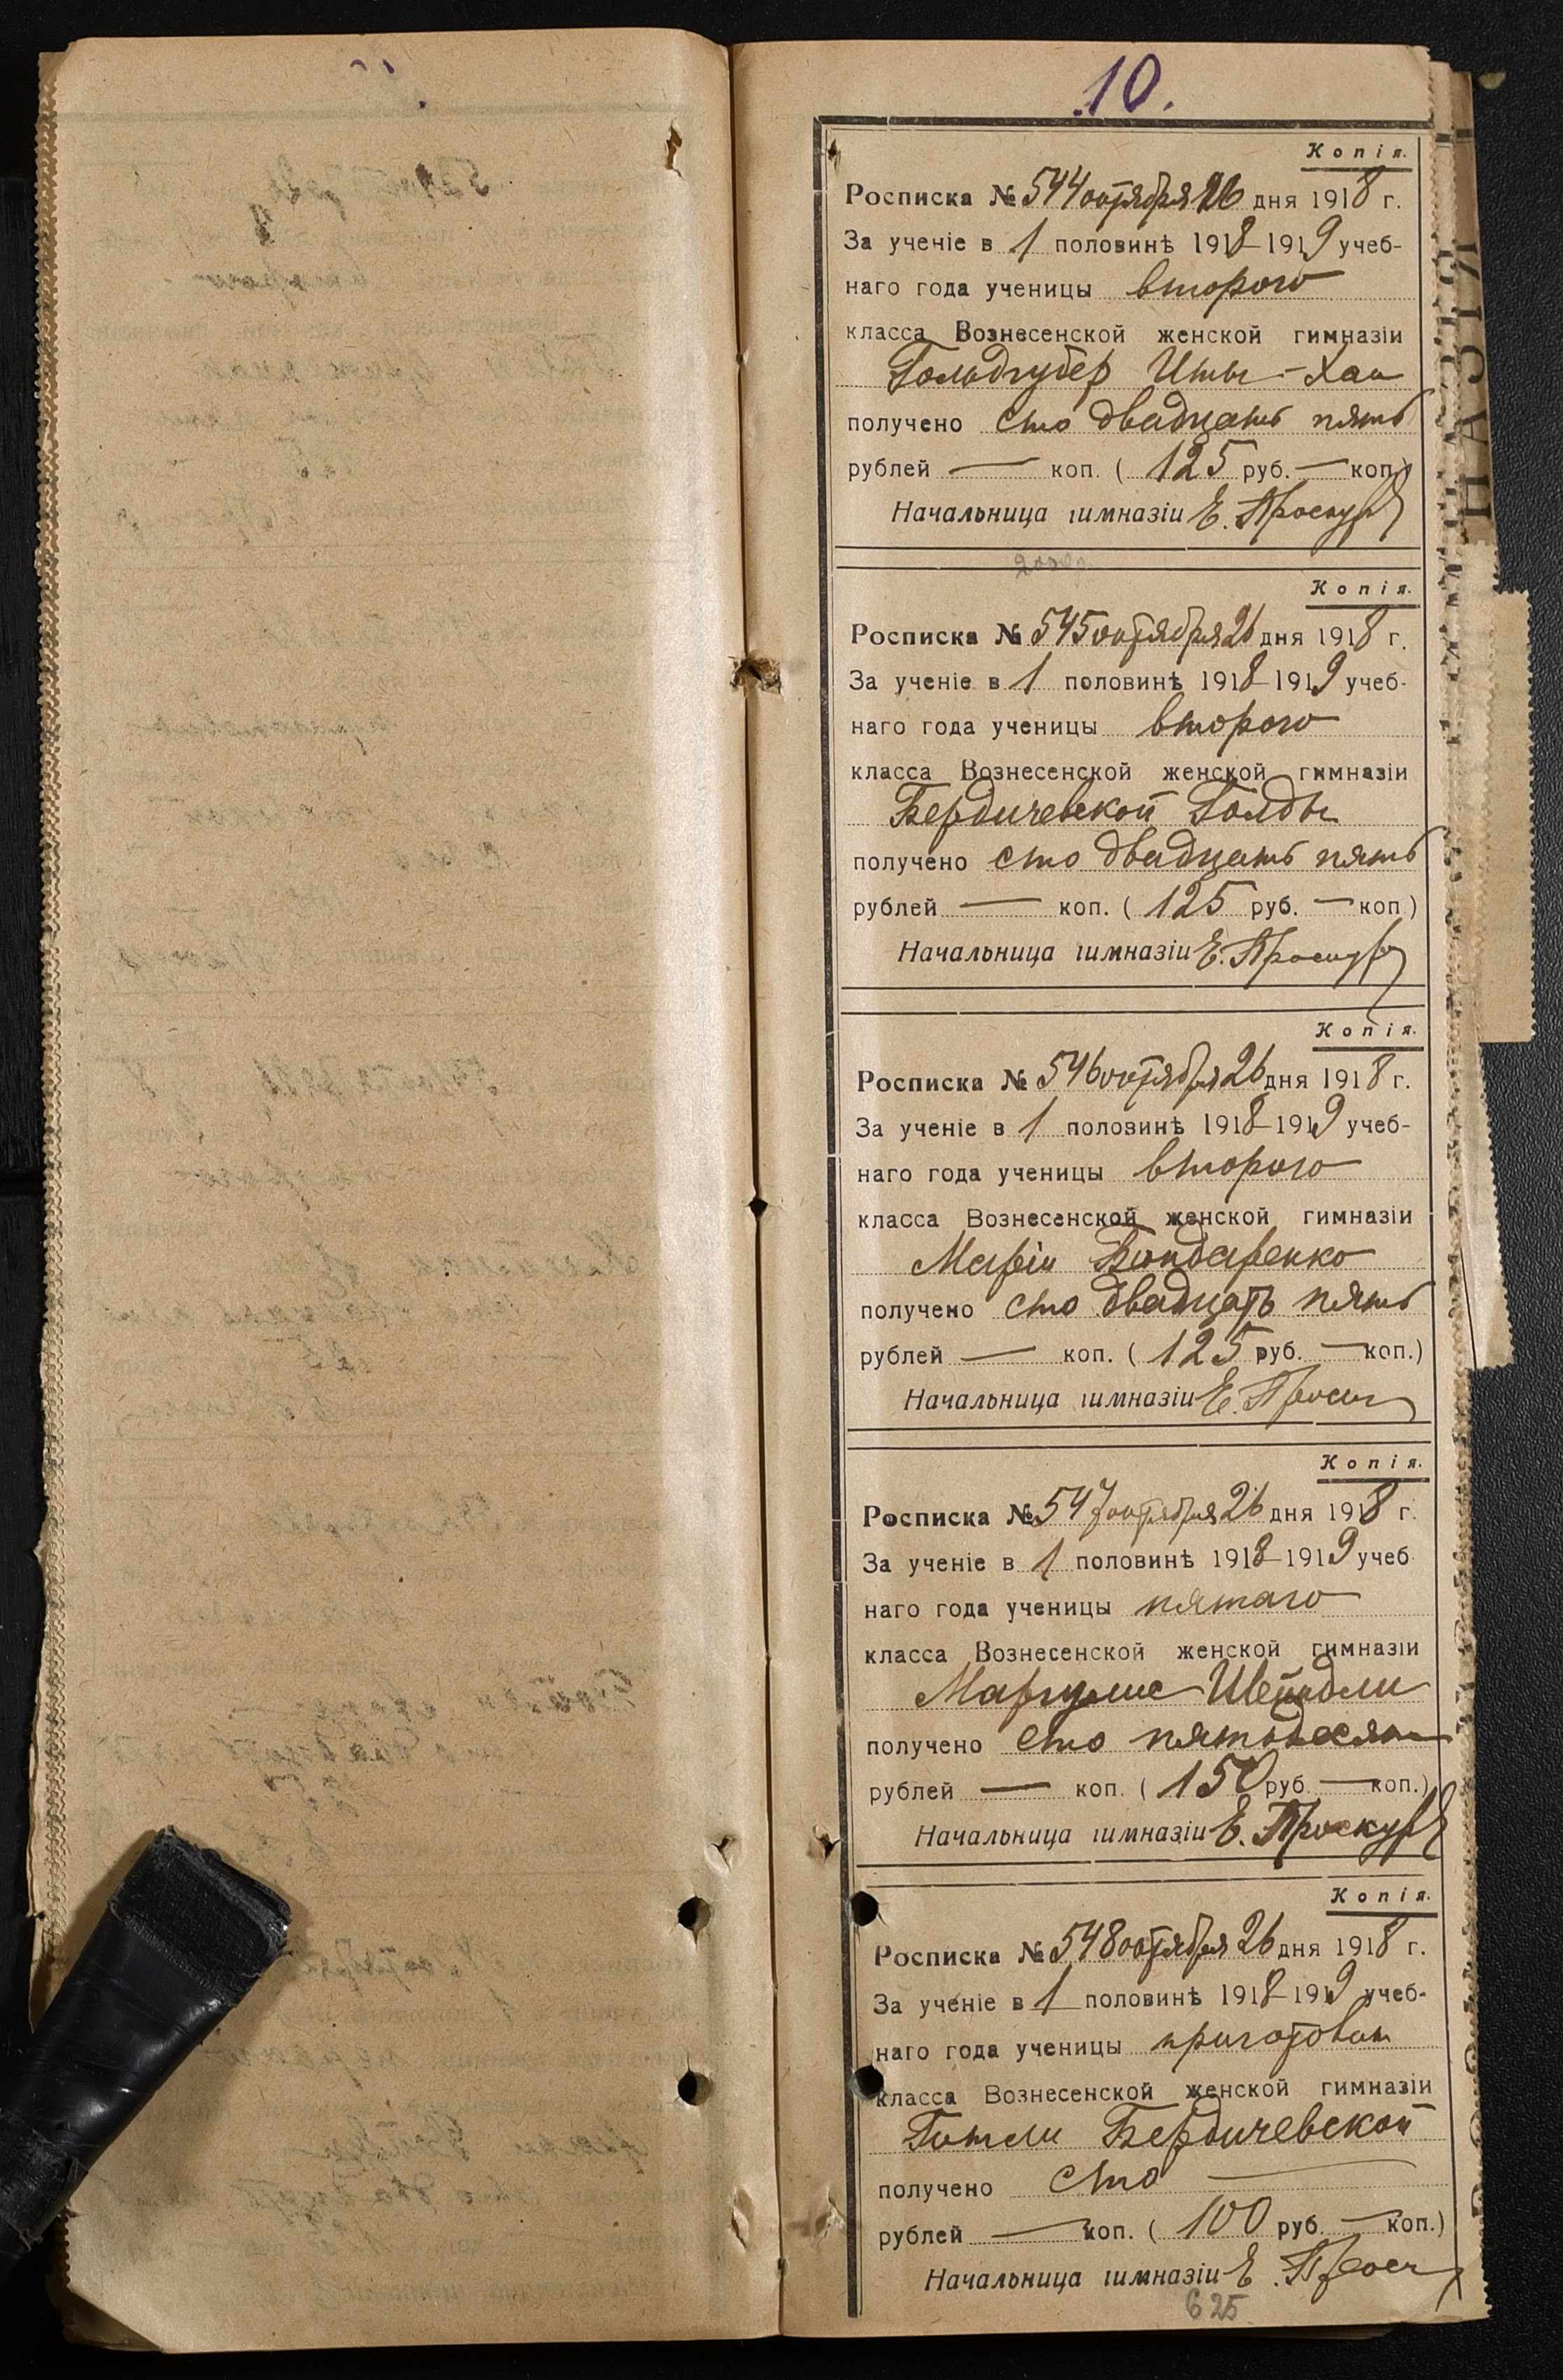 10.
Копія.
Росписка № 544 октября 26 дня 1918 г.
За ученіе в 1 половинѣ 1918-1919 учеб-
наго года ученицы второго
класса Вознесенской женской гимназіи
Гольдгубер Иты-Хаи
получено сто двадцать пять
рублей — коп. ( 125 руб. — коп.)
Начальница гимназіи Е.
Копія.
Росписка № 545 октября 26 дня 1918 г.
За ученіе в 1 половинѣ 1918-1919 учеб-
наго года ученицы второго
класса Вознесенской женской гимназіи
Бердичевской Голды
получено сто двадцать пять
рублей — коп. ( 125 руб. — коп)
Начальница гимназіи Е.
Копія.
Росписка № 546 октября 26 дня 1918 г.
За ученіе в 1 половинѣ 1918-1919 учеб-
наго года ученицы второго
класса Вознесенской женской гимназіи
Маріи Бондаренко
получено сто двадцать пять
рублей — коп. ( 125 руб. — коп.)
Начальница гимназіи Е.
Копія.
Росписка № 547 октября 26 дня 1918 г.
За ученіе в 1 половинѣ 1918-1919 учеб
наго года ученицы пятаго
класса Вознесенской женской гимназіи
Маргулис Шейндли
получено сто пятьдесят
рублей — коп. ( 150 руб. — коп.)
Начальница гимназіи Е.
Копія.
Росписка № 548 октября 26 дня 1918 г.
За ученіе в 1 половинѣ 1918-1919 учеб-
наго года ученицы приготовит
класса Вознесенской женской гимназіи
Гитли Бердичевской
получено сто —
рублей — коп. ( 100 руб. — коп.)
Начальница гимназіи Е.
625